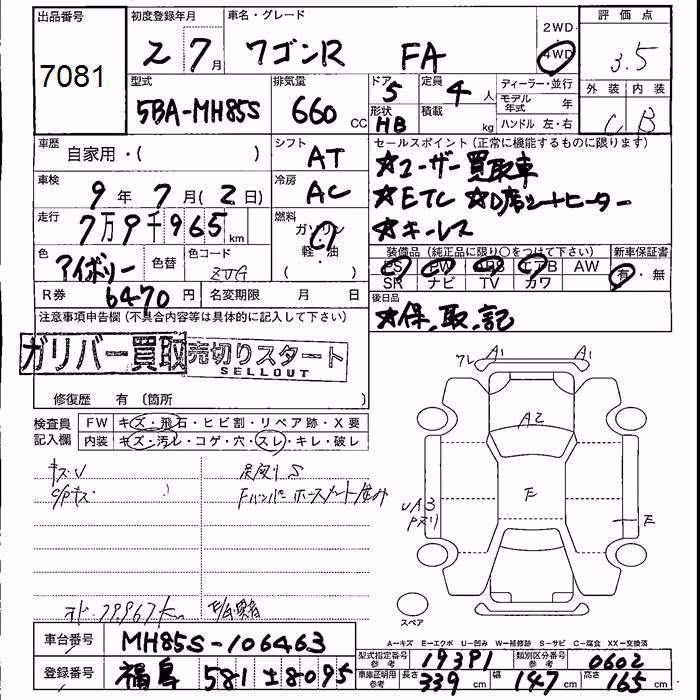 出品番号 7081
初度登録年月 2 7月
車名・グレード ワゴンR FA
2WD・4WD
評価点 3.5
外装 C 内装 B
型式 5BA-MH85S
排気量 660 CC
ドア 5
形状 HB
定員 4人
積載 kg
ディーラー・並行
モデル年式 年
ハンドル 左・右
車歴 自家用・( )
シフト AT
セールスポイント(正常に機能するものに限ります)
☆ユーザー買取車
☆ETC ☆D席シートヒーター
☆キーレス
車検 9年 7月(2日)
冷房 AC
走行 7万9千965km
燃料 ガソリン・軽・油 ( )
色 アイボリー
色替
色コード ZJG
装備品(純正品に限り○をつけて下さい)
PS PW ABS エアB AW
SR ナビ TV カワ
新車保証書 有・無
R券 6470円
名変期限 月 日
後日品
☆保、取、記
注意事項申告欄(不具合内容等は具体的に記入して下さい)
ガリバー買取
売切りスタート
SELLOUT
修復歴 有 (箇所 )
検査員記入欄
FW キズ・飛石・ヒビ割・リペア跡・X要
内装 キズ・汚レ・コゲ・穴・スレ・キレ・破レ
キズU
Fバンパー
79.967km
ワレ A1 A1
A2
F
UA3
E
スペア
A-キズ E-エクボ U-凹み W-補修跡 S-サビ C-腐食 XX-交換済
車台番号 MH85S-106463
登録番号 福島 581 ± 8095
型式指定番号 参考 19391
類別区分番号 参考 0602
車庫証明用 参考 長さ 339cm 幅 147cm 高さ 165cm